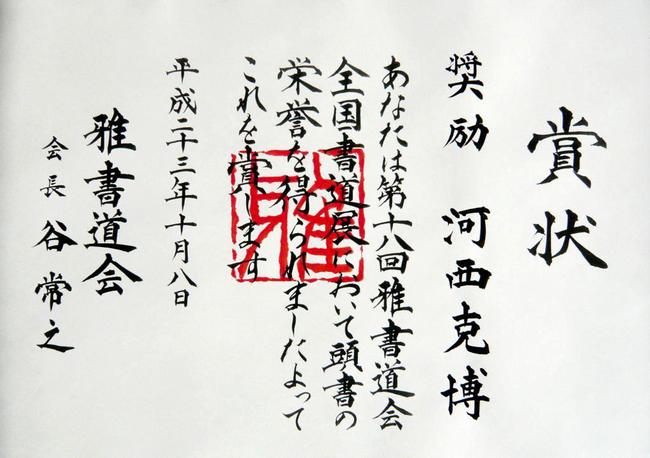 賞状
奨励 河西克博
あなたは第十八回雅書道会
全国書道展において頭書の
栄誉を得られましたよって
これを賞します
平成二十三年十月八日
雅書道会
会長 谷常之